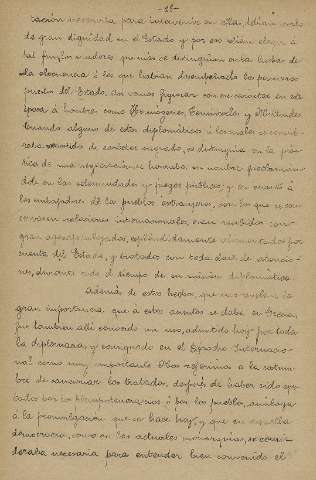 - 12 -
tación necesaria para intervenir en ellas, debían ser
de gran dignidad en el Estado y por eso solían elegir á
tal fin, los oradores que más se distinguían en las luchas de
la elocuencia ó los que habían desempeñado los primeros
puestos del Estado. Así vemos figurar con este carácter en esta
época á hombres como Demóstenes, y
Cuando alguno de estos diplomáticos ó heraldos se encontraba
revestido de carácter sagrado, se distinguía en la práctica
de una negociación honrosa, su nombre proclamándose
en las solemnidades y juegos públicos, y en cuanto á
los embajadores de los pueblos extranjeros, con los que se
relaciones internacionales, eran recibidos con
gran agasajo, espléndidamente alimentados por
cuenta del Estado, y tratados con toda clase de atenciones,
durante todo el tiempo de su misión diplomática.
Además de estos hechos, que nos revelan la
gran importancia que á estos asuntos se daba en Grecia
fue también allí conocido un uso, admitido hoy por toda
la diplomacia y consignado en el Derecho Internacional
como muy importante. Nos referimos á la costumbre
de sancionar los tratados, después de haber sido aprobados
por los plenipotenciarios ó por los pueblos, análoga
á la promulgación que se hace hoy, y que en aquella
democracia, como en las actuales monarquías, se consideraba
necesaria para entender bien convenido el